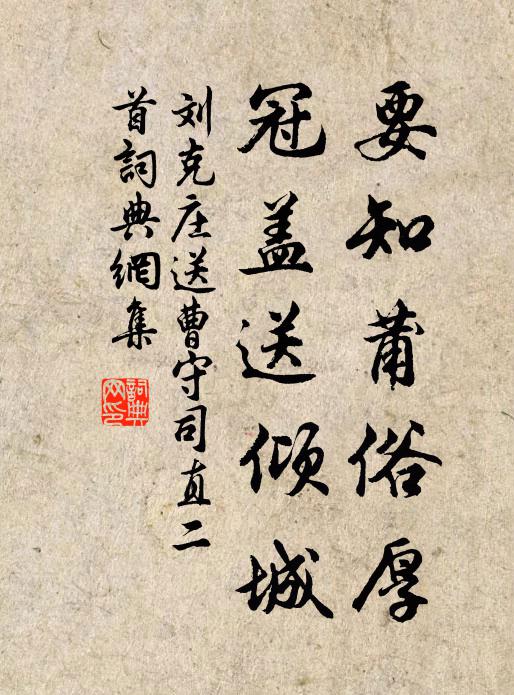 要知莆俗厚
冠盖送倾城
刘克庄送曹守司直二
首詞典網集
詞典网印